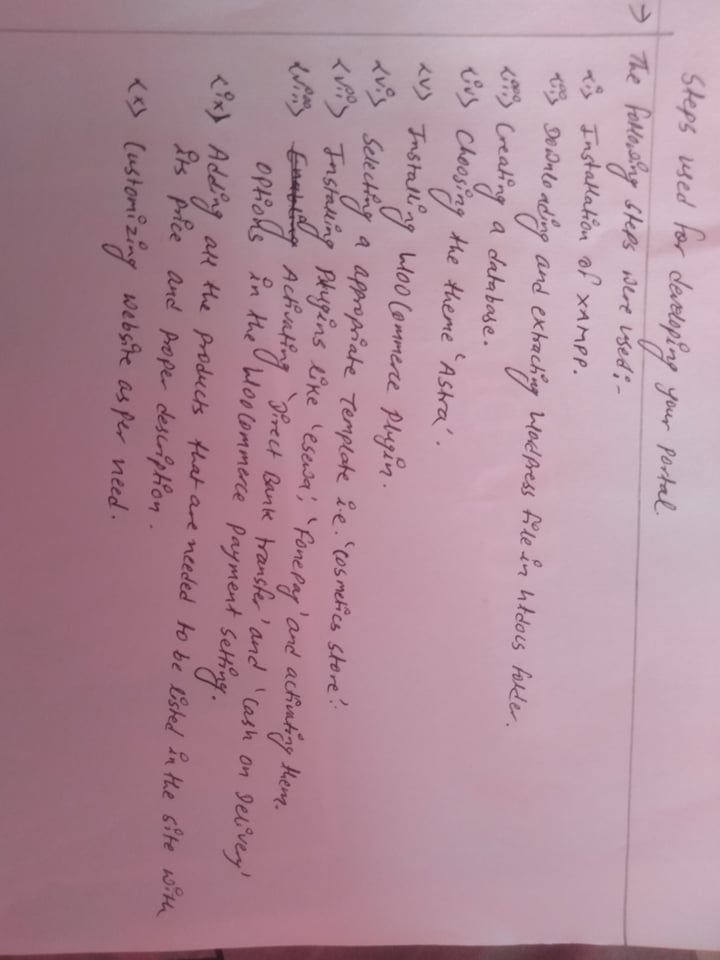 Steps used for developing your portal.
→ The following steps were used:-
<i> Installation of XAMPP.
<ii> Downloading and extracting Wordpress file in htdocs folder.
<iii> Creating a database.
<iv> Choosing the theme 'Astra'.
<v> Installing WooCommerce Plugin.
<vi> Selecting a appropriate Template i.e. 'Cosmetics store'.
<vii> Installing Plugins like 'esewa', 'fonepay' and activating them.
<viii> Enabling Activating 'Direct Bank transfer' and 'Cash on Delivery'
options in the WooCommerce payment setting.
<ix> Adding all the products that are needed to be listed in the site with
its price and proper description.
<x> Customizing website as per need.